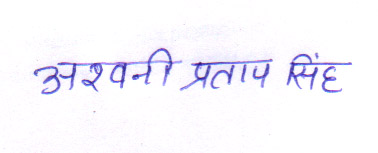 अश्वनी प्रताप सिंह